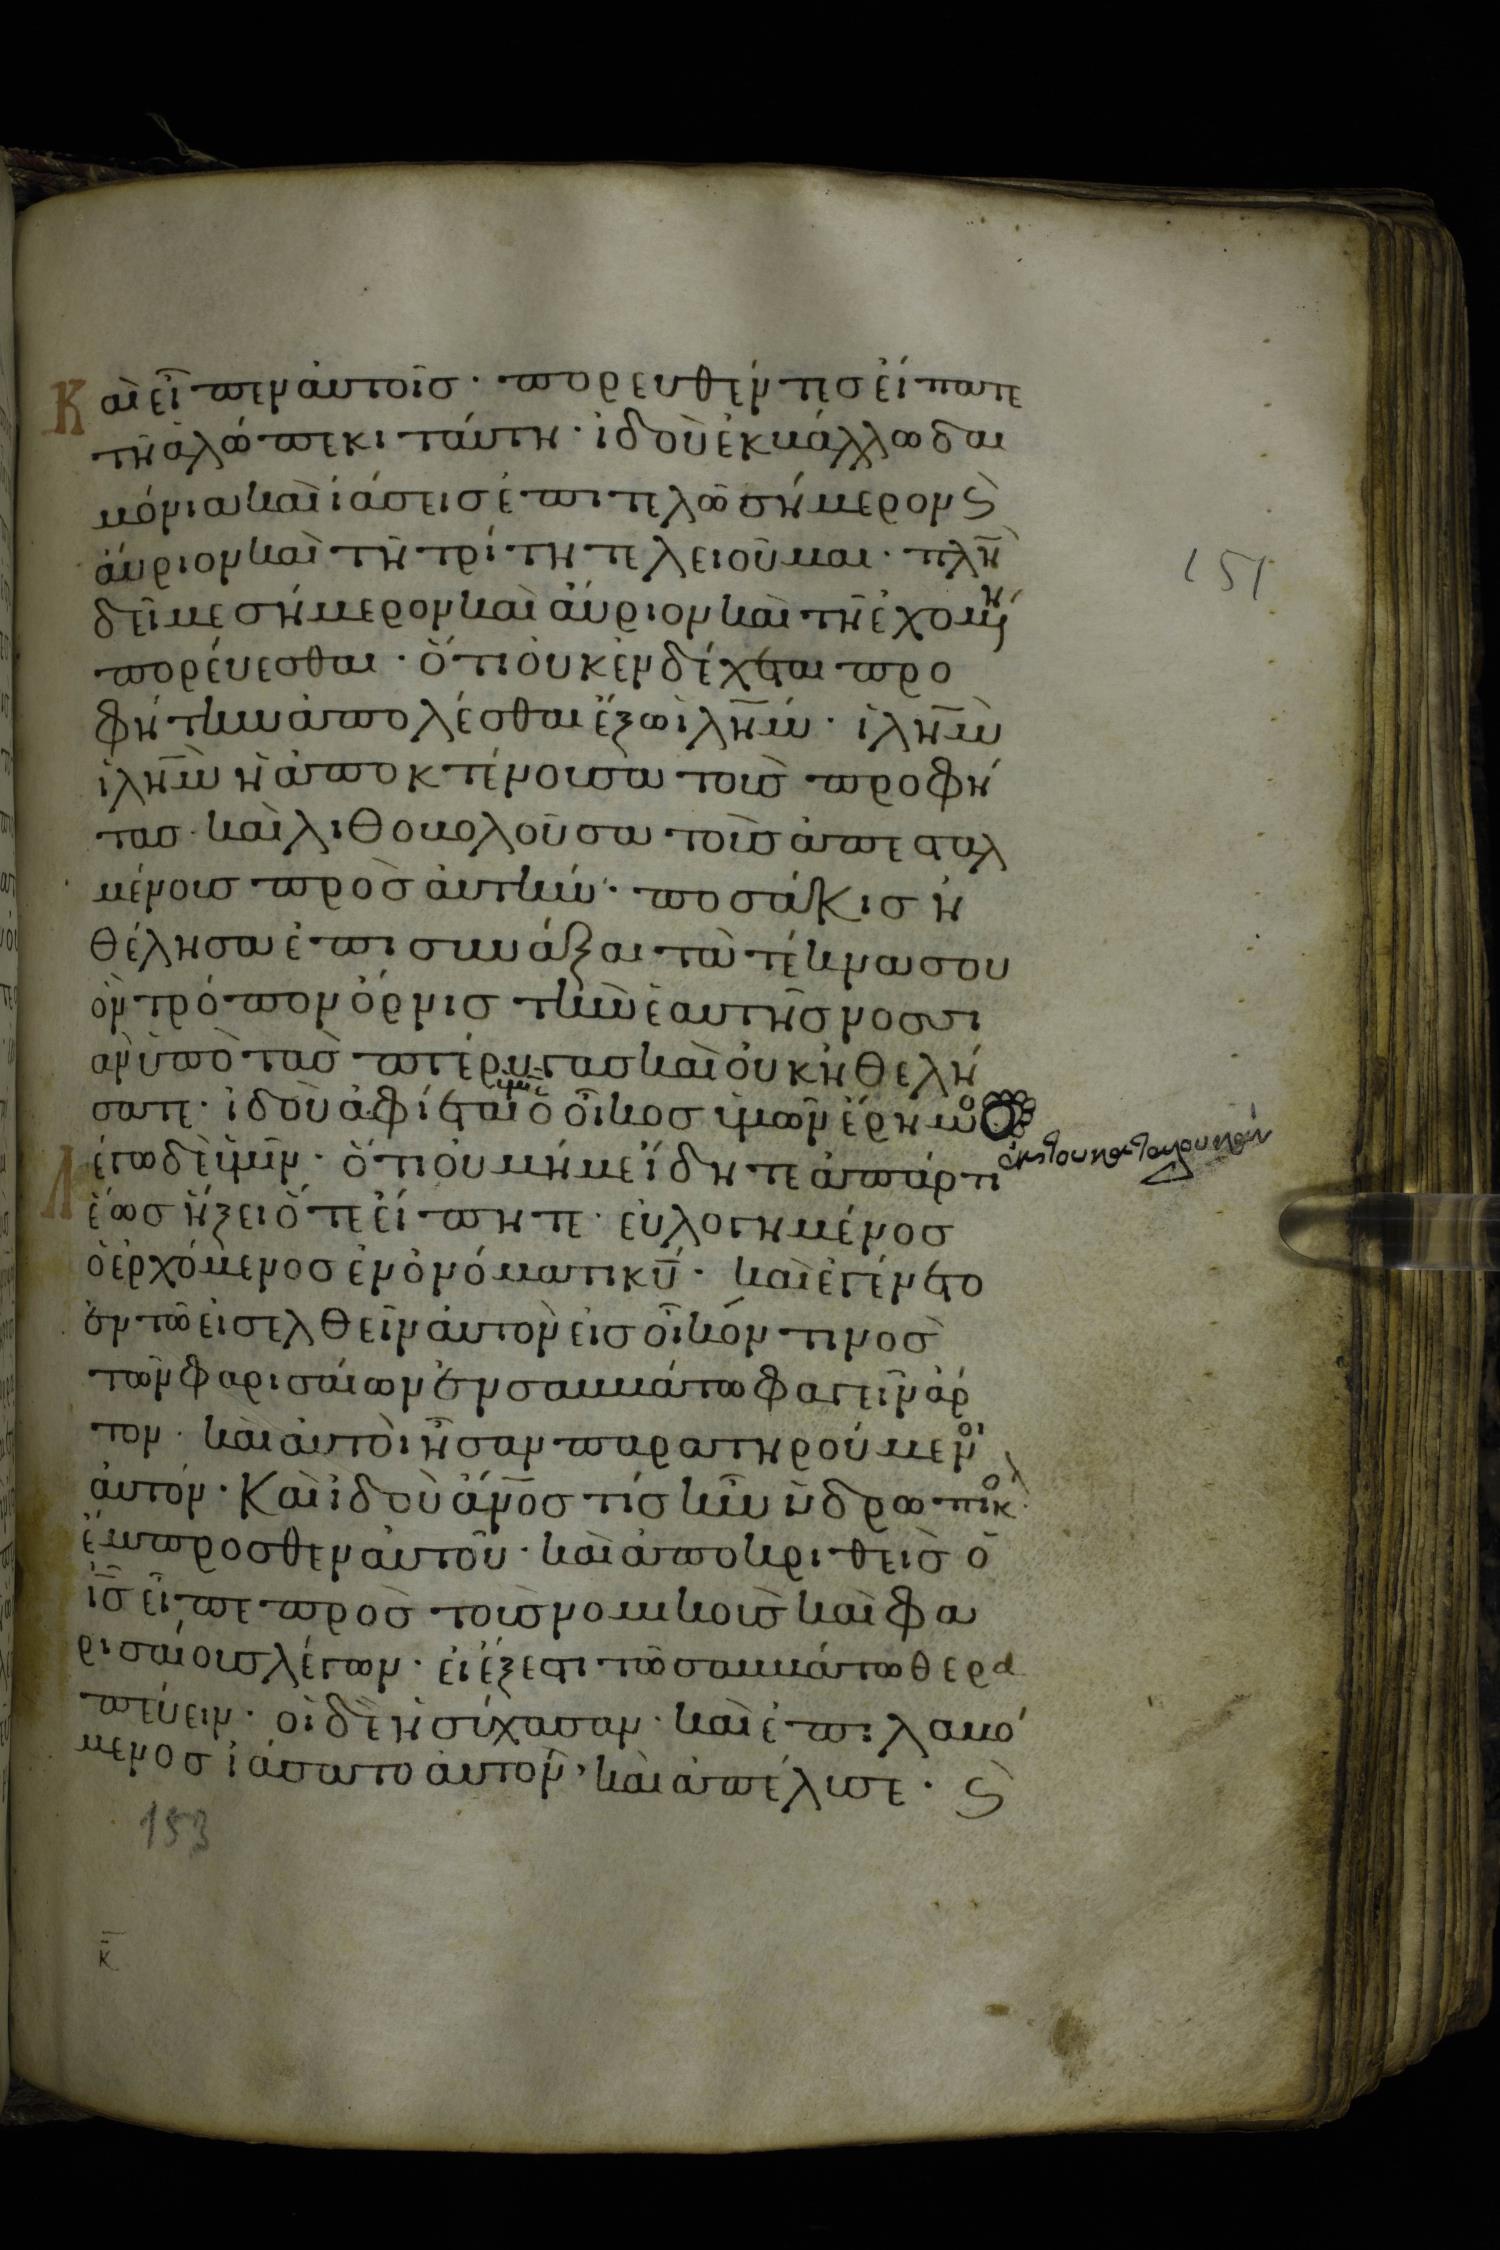 Καὶ εἶπεν αὐτοῖσ · πορευθέντεσ εἴπατε
τῆ ἀλώπεκι ταύτη · ἰδοὺ ἐκβάλλω δαι
μόνια καὶ ἰάσεισ ἐπιτελῶ σήμερον ϛ̀
151
ἄυριον καὶ τῆ τρίτη τελειοῦμαι · πλὴν
δεῖ με σήμερον καὶ ἄυριον καὶ τῆ ἐχομ(έν)η
πορέυεσθαι · ὅτι ὀυκ ἐνδέχεται προ
φήτην ἀπολέσθαι ἔξω ἱλη̅μ · ἱλη̅μ
ἱλη̅μ ἡ ἀποκτένουσα τοὺσ προφή
τασ · καὶ λιθοβολοῦσα τοὺσ ἀπεσταλ
μένουσ πρὸσ ἀυτήν · ποσάκισ ἠ
θέλησα ἐπισυνάξαι τὰ τέκνα σου
ὃν τρόπον ὄρνισ τὴν ἑαυτῆσ νοσσι
ὰν ὑπὸ τὰσ πτέρυγασ καὶ ὀυκ ἠθελή
σατε · ἰδοὺ ἀφίεται ὑμῖν ὁ ὄικοσ ὑμῶν ἔρημοσ
λέγω δὲ ὑμῖν · ὅτι ὀυ μή με ἴδητε ἀπάρτι
ἕωσ ἥξει ὅτε εἴπητε · ἐυλογημένοσ
ὁ ἐρχόμενοσ ἐν ὀνόματι κ̅υ · καὶ ἐγένετο
ἐν τῶ ἐισελθεῖν ἀυτὸν ἐισ οἶκόν τινοσ
τῶν φαρισαίων ἐν σαββάτω φαγεῖν ἄρ
τον · καὶ ἀυτοὶ ἦσαν παρατηρούμενοι
ἀυτόν · Καὶ ἰδοὺ ἄν̅οσ τίσ ἦν ὑδρωπικὸσ
ἔμπροσθεν ἀυτοῦ · καὶ ἀποκριθεὶσ ὁ
ι̅σ εἶπε πρὸσ τοὺσ νομικοὺσ καὶ φα
ρισαίουσ λέγων · ἐι ἔξεστι τῶ σαββάτω θερα
πέυειν · ὁι δὲ ἡσύχασαν · καὶ ἐπιλαβό
μενοσ ἰάσατο ἀυτὸν · καὶ ἀπέλυσε · ϛ̀
153
κ̅